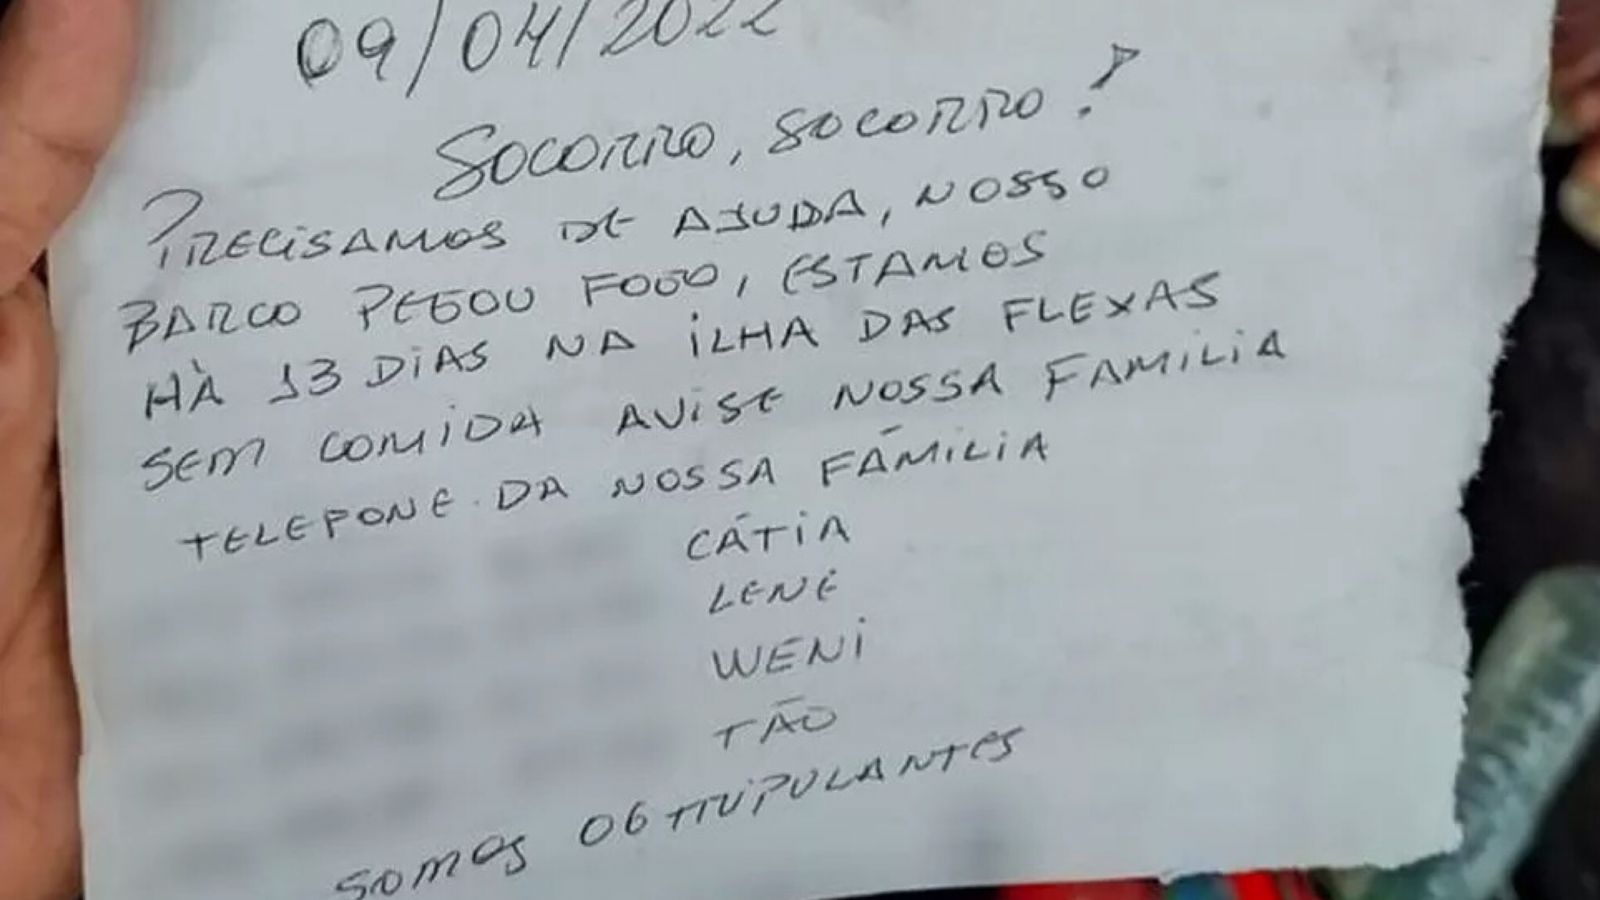 09/04/2022
SOCORRO, SOCORRO!
PRECISAMOS DE AJUDA, NOSSO
BARCO PEGOU FOGO, ESTAMOS
HÀ 13 DIAS NA ILHA DAS FLEXAS
SEM COMIDA AVISE NOSSA FAMILIA
TELEFONE. DA NOSSA FÁMILIA
CÁTIA
LENE
WENI
TÃO
SOMOS 06 TRIPULANTES